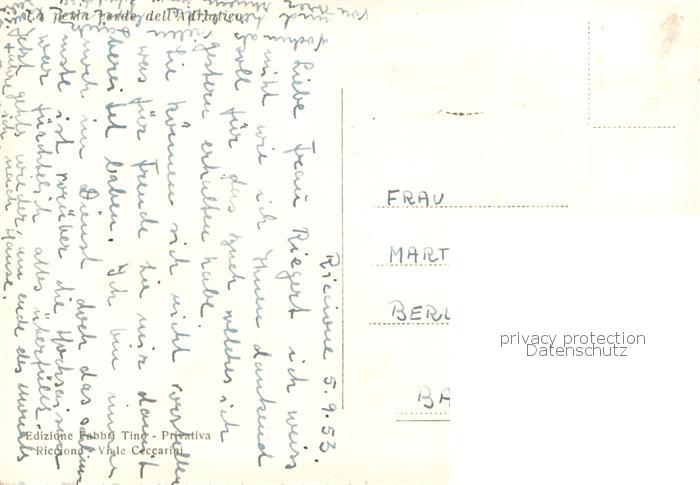 La perla verde dell'Adriatico
Riccione 5.9.53.
Liebe Frau Riegert ich weiss
nicht wie ich Ihnen dankend
soll für das Buch welches ich
gestern erhalten habe.
Sie können sich nicht vorstellen
was für Freude Sie mir damit
bereitet haben. Ich bin immer
noch im Dienst doch das schlim
mste ist vorüber die Hochsaison
war fürchtelich alles überfüllt.
Jetzt gehts wieder, am ende des monats
fahre ich nach Hause.
Edizione Fabbri Tino - Privativa
Riccione - Viale Ceccarini
FRAU
MART
BERL
BA
privacy protection
Datenschutz